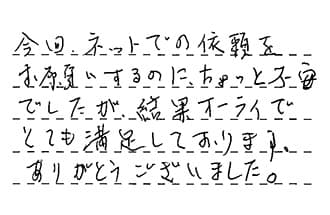 今回、ネットでの依頼を
お願いするのに、ちょっと不安
でしたが、結果オーライで
とても満足しております。
ありがとうございました。